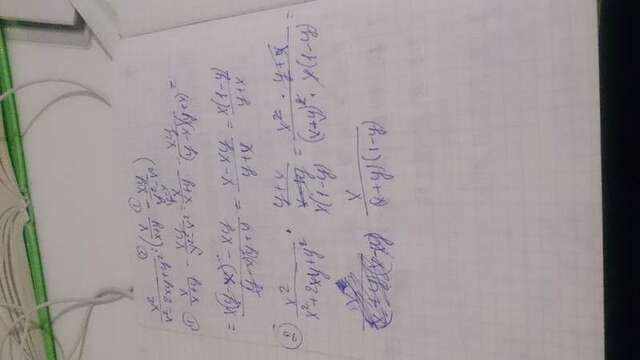 ② ①
x²/(x²-2xy+y²) : (x/(x+y) - xy/(y²-x²))
① x/(x+y) - xy/(y²-x²) = x/(x+y) - xy/((y-x)(y+x)) =
= (x(y-x) - xy)/((y-x)(y+x)) = (x-xy)/(y+x) = x(1-y)/(y+x)
② x²/(x²+2xy+y²) · (y+x)/(x(1-y)) = (x² · y+x)/((x+y)² · x(1-y)) =
x/((x+y)(1-y))